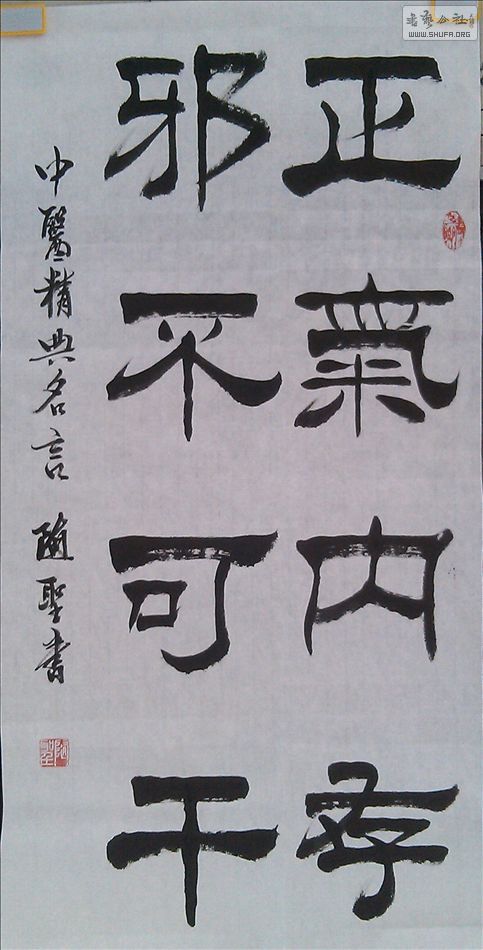 正氣内存
邪不可干
中醫精典名言 随聖書
書藝公社
WWW.SHUFA.ORG